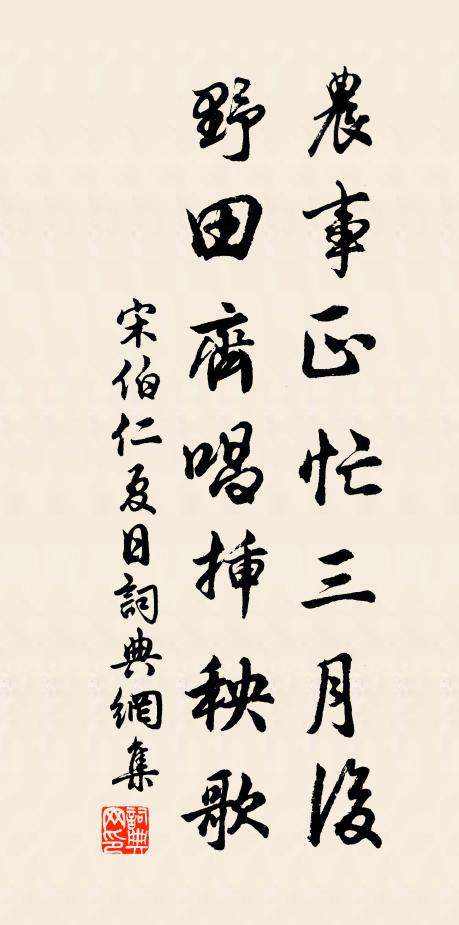 農事正忙三月後
野田齊唱揷秧歌
宋伯仁夏日詞典網集
詞典网印